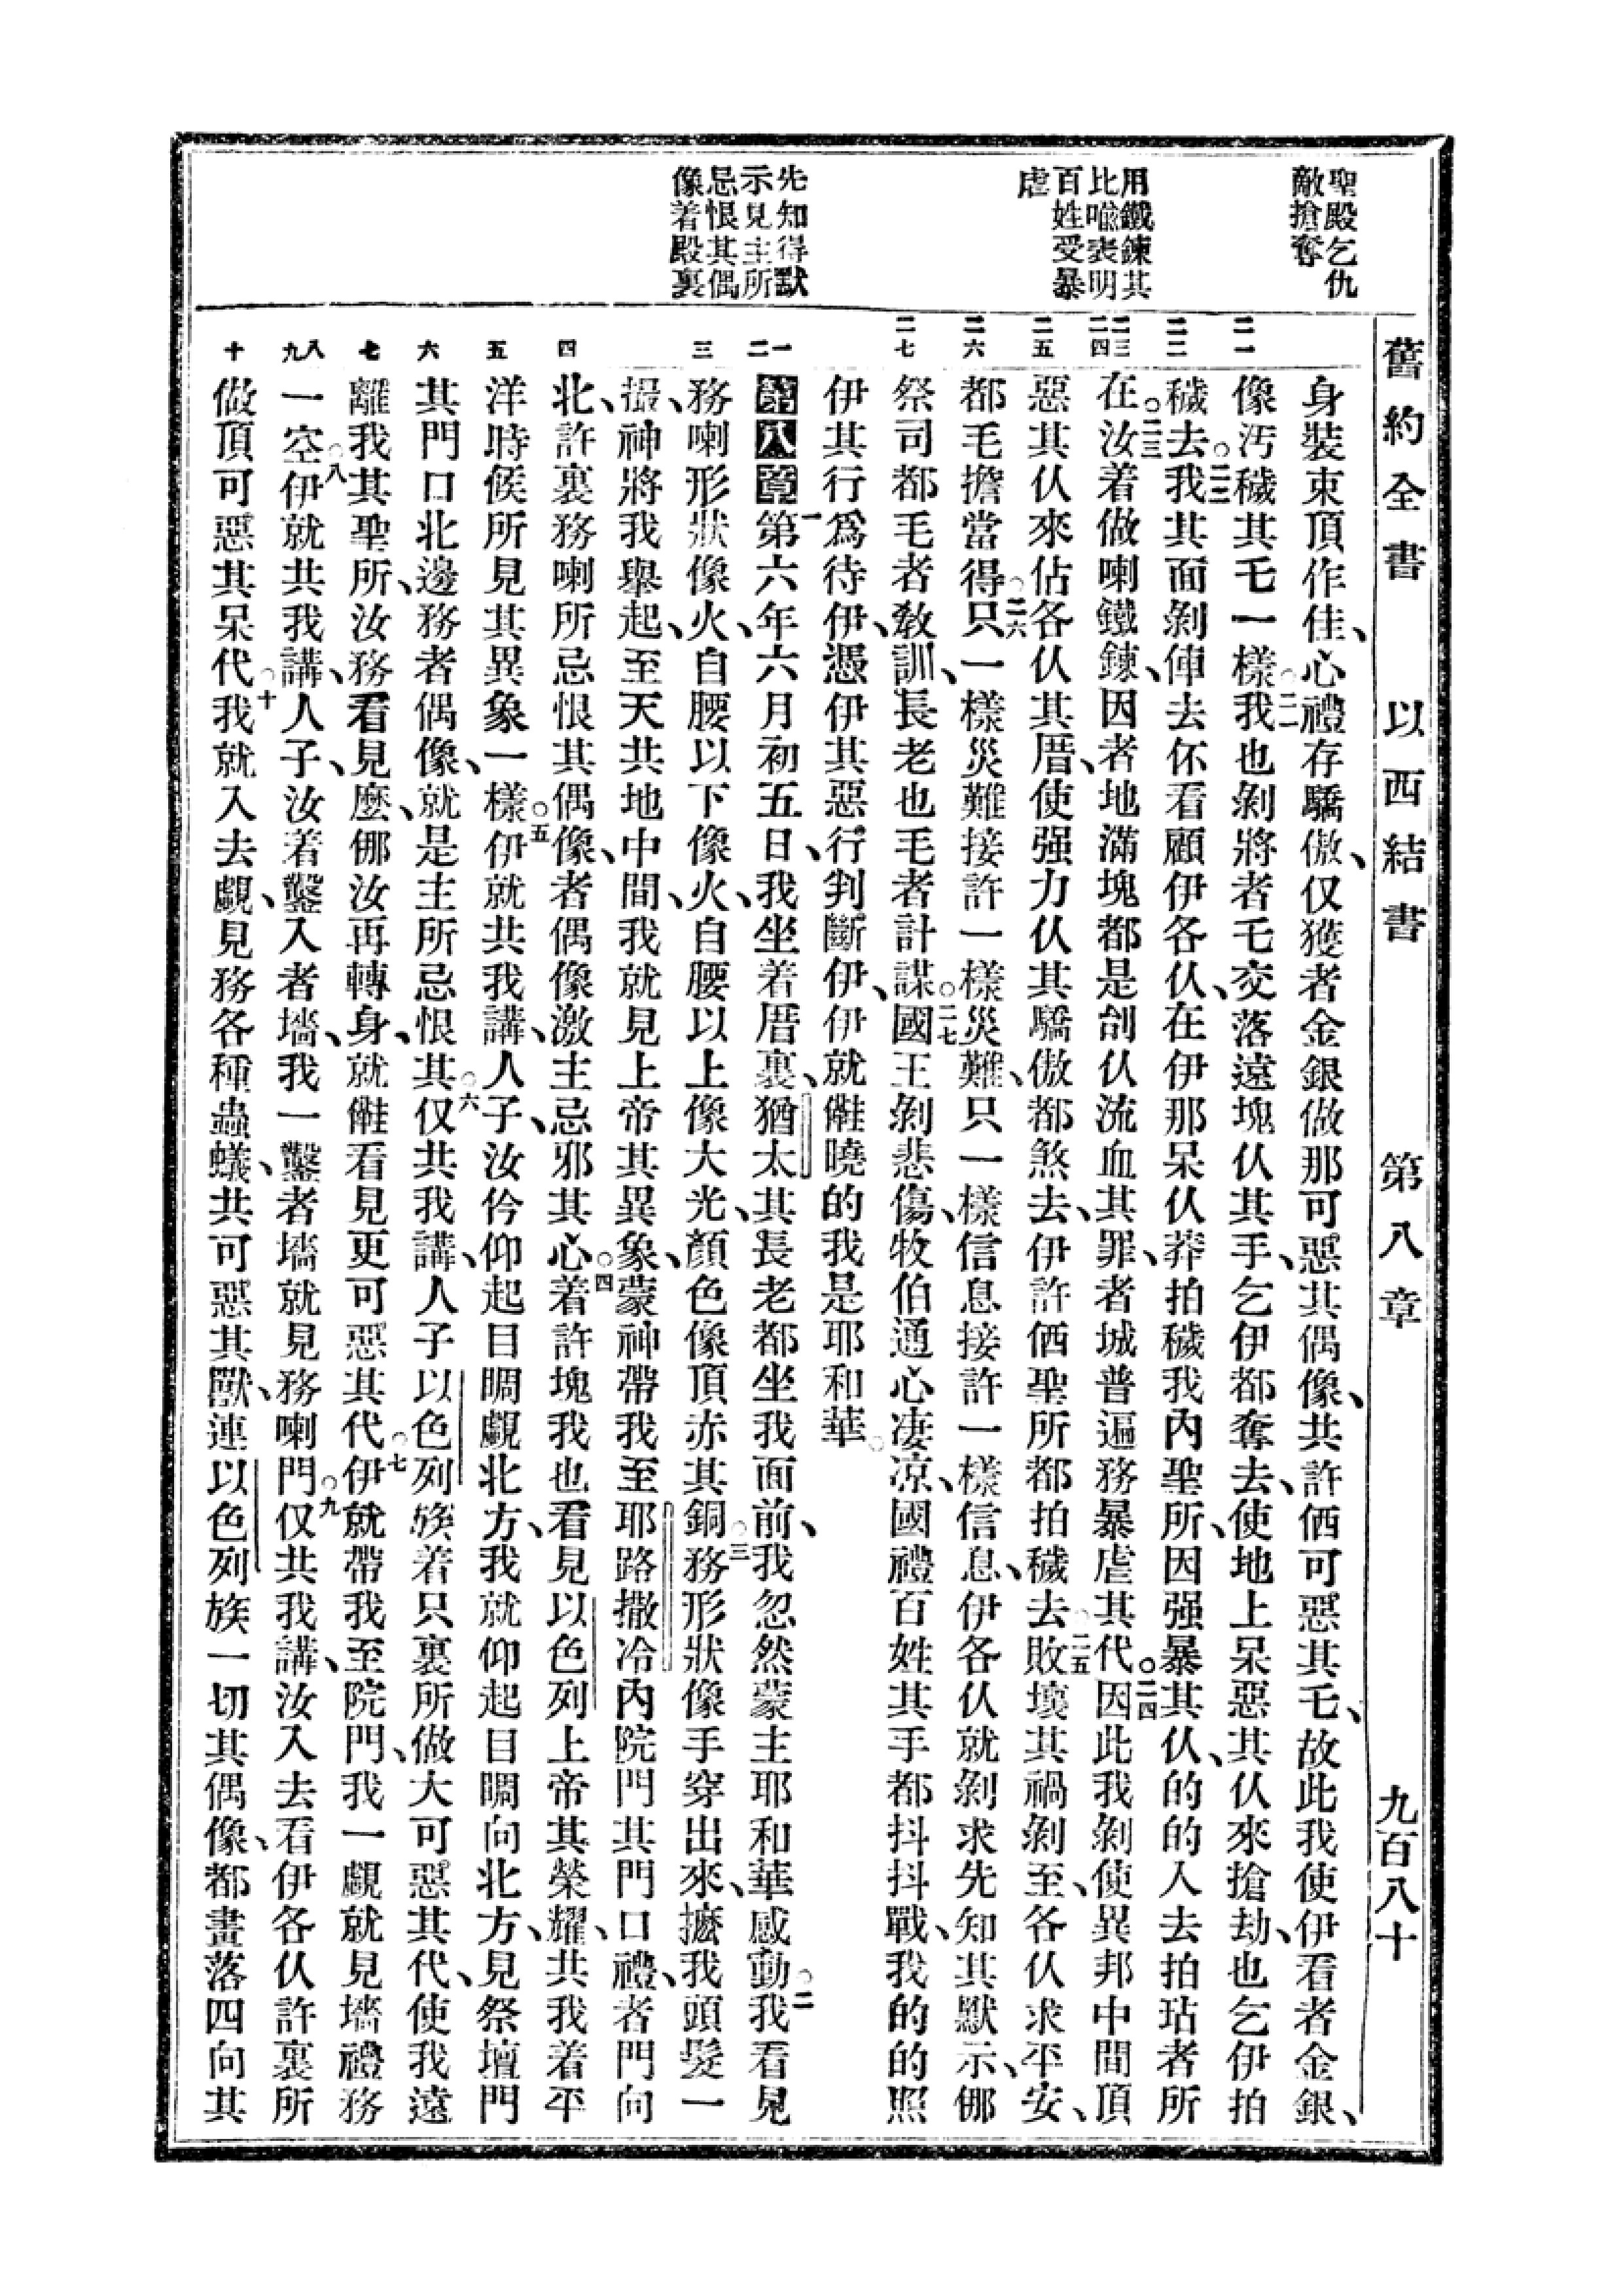 舊約全書 以西結書 第八章 九百八十
聖殿乞仇
敵搶奪
用鐵鍊其
比喩表明
百姓受暴
虐
先知得默
示見主所
忌恨其偶
像着殿裏
二一
二二
二三
二四
二五
二六
二七
一
二
三
四
五
六
七
八
九
十
身裝束頂作佳、心禮存驕傲、仅獲者金銀做那可惡其偶像、共許俹可惡其乇、故此我使伊看者金銀、
像汚穢其乇一樣○二一我也剝將者乇交落遠塊仈其手、乞伊都奪去、使地上呆惡其仈來搶劫、也乞伊拍
穢去○二二我其面剝俥去伓看顧伊各仈、在伊那呆仈莽拍穢我內聖所、因强暴其仈、的的入去拍玷者所
在○二三汝着做喇鐵鍊、因者地滿塊都是刣仈流血其罪、者城普遍務暴虐其代○二四因此我剝使異邦中間頂
惡其仈來佔各仈其厝、使强力仈其驕傲都煞去、伊許俹聖所都拍穢去○二五敗壞其禍剝至、各仈求平安、
都毛擔當得○二六只一樣災難接許一樣災難、只一樣信息接許一樣信息、伊各仈就剝求先知其默示、㑚
祭司都毛者敎訓、長老也毛者計謀○二七國王剝悲傷、牧伯通心凄凉、國禮百姓其手都抖抖戰、我的的照
伊其行爲待伊、憑伊其惡行、判斷伊、伊就㒔曉的我是耶和華○
第八章 一第六年六月初五日、我坐着厝裏、猶太其長老都坐我面前、我忽然蒙主耶和華感動○二我看見
務喇形狀像火、自腰以下像火、自腰以上像大光、顏色像頂赤其銅○三務形狀像手穿出來、搋我頭髮一
撮、神將我舉起、至天共地中間、我就見上帝其異象、蒙神帶我至耶路撒冷內院門其門口禮、者門向
北、許裏務喇所忌恨其偶像、者偶像激主忌邪其心○四着許塊我也看見以色列上帝其榮耀、共我着平
洋時候所見其異象一樣○五伊就共我講、人子、汝仱仰起目睭覷北方、我就仰起目睭向北方、見祭壇門
其門口北邊務者偶像、就是主所忌恨其○六仅共我講、人子以色列族着只裏所做大可惡其代、使我遠
離我其聖所、汝務看見麽、㑚汝再轉身、就㒔看見更可惡其代○七伊就帶我至院門、我一覷就見墻禮務
一空○八伊就共我講、人子、汝着鑿入者墻、我一鑿者墻就見務喇門○九仅共我講、汝入去看伊各仈許裏所
做頂可惡其呆代○十我就入去覷、見務各種蟲蟻、共可惡其獸、連以色列族一切其偶像、都畫落四向其